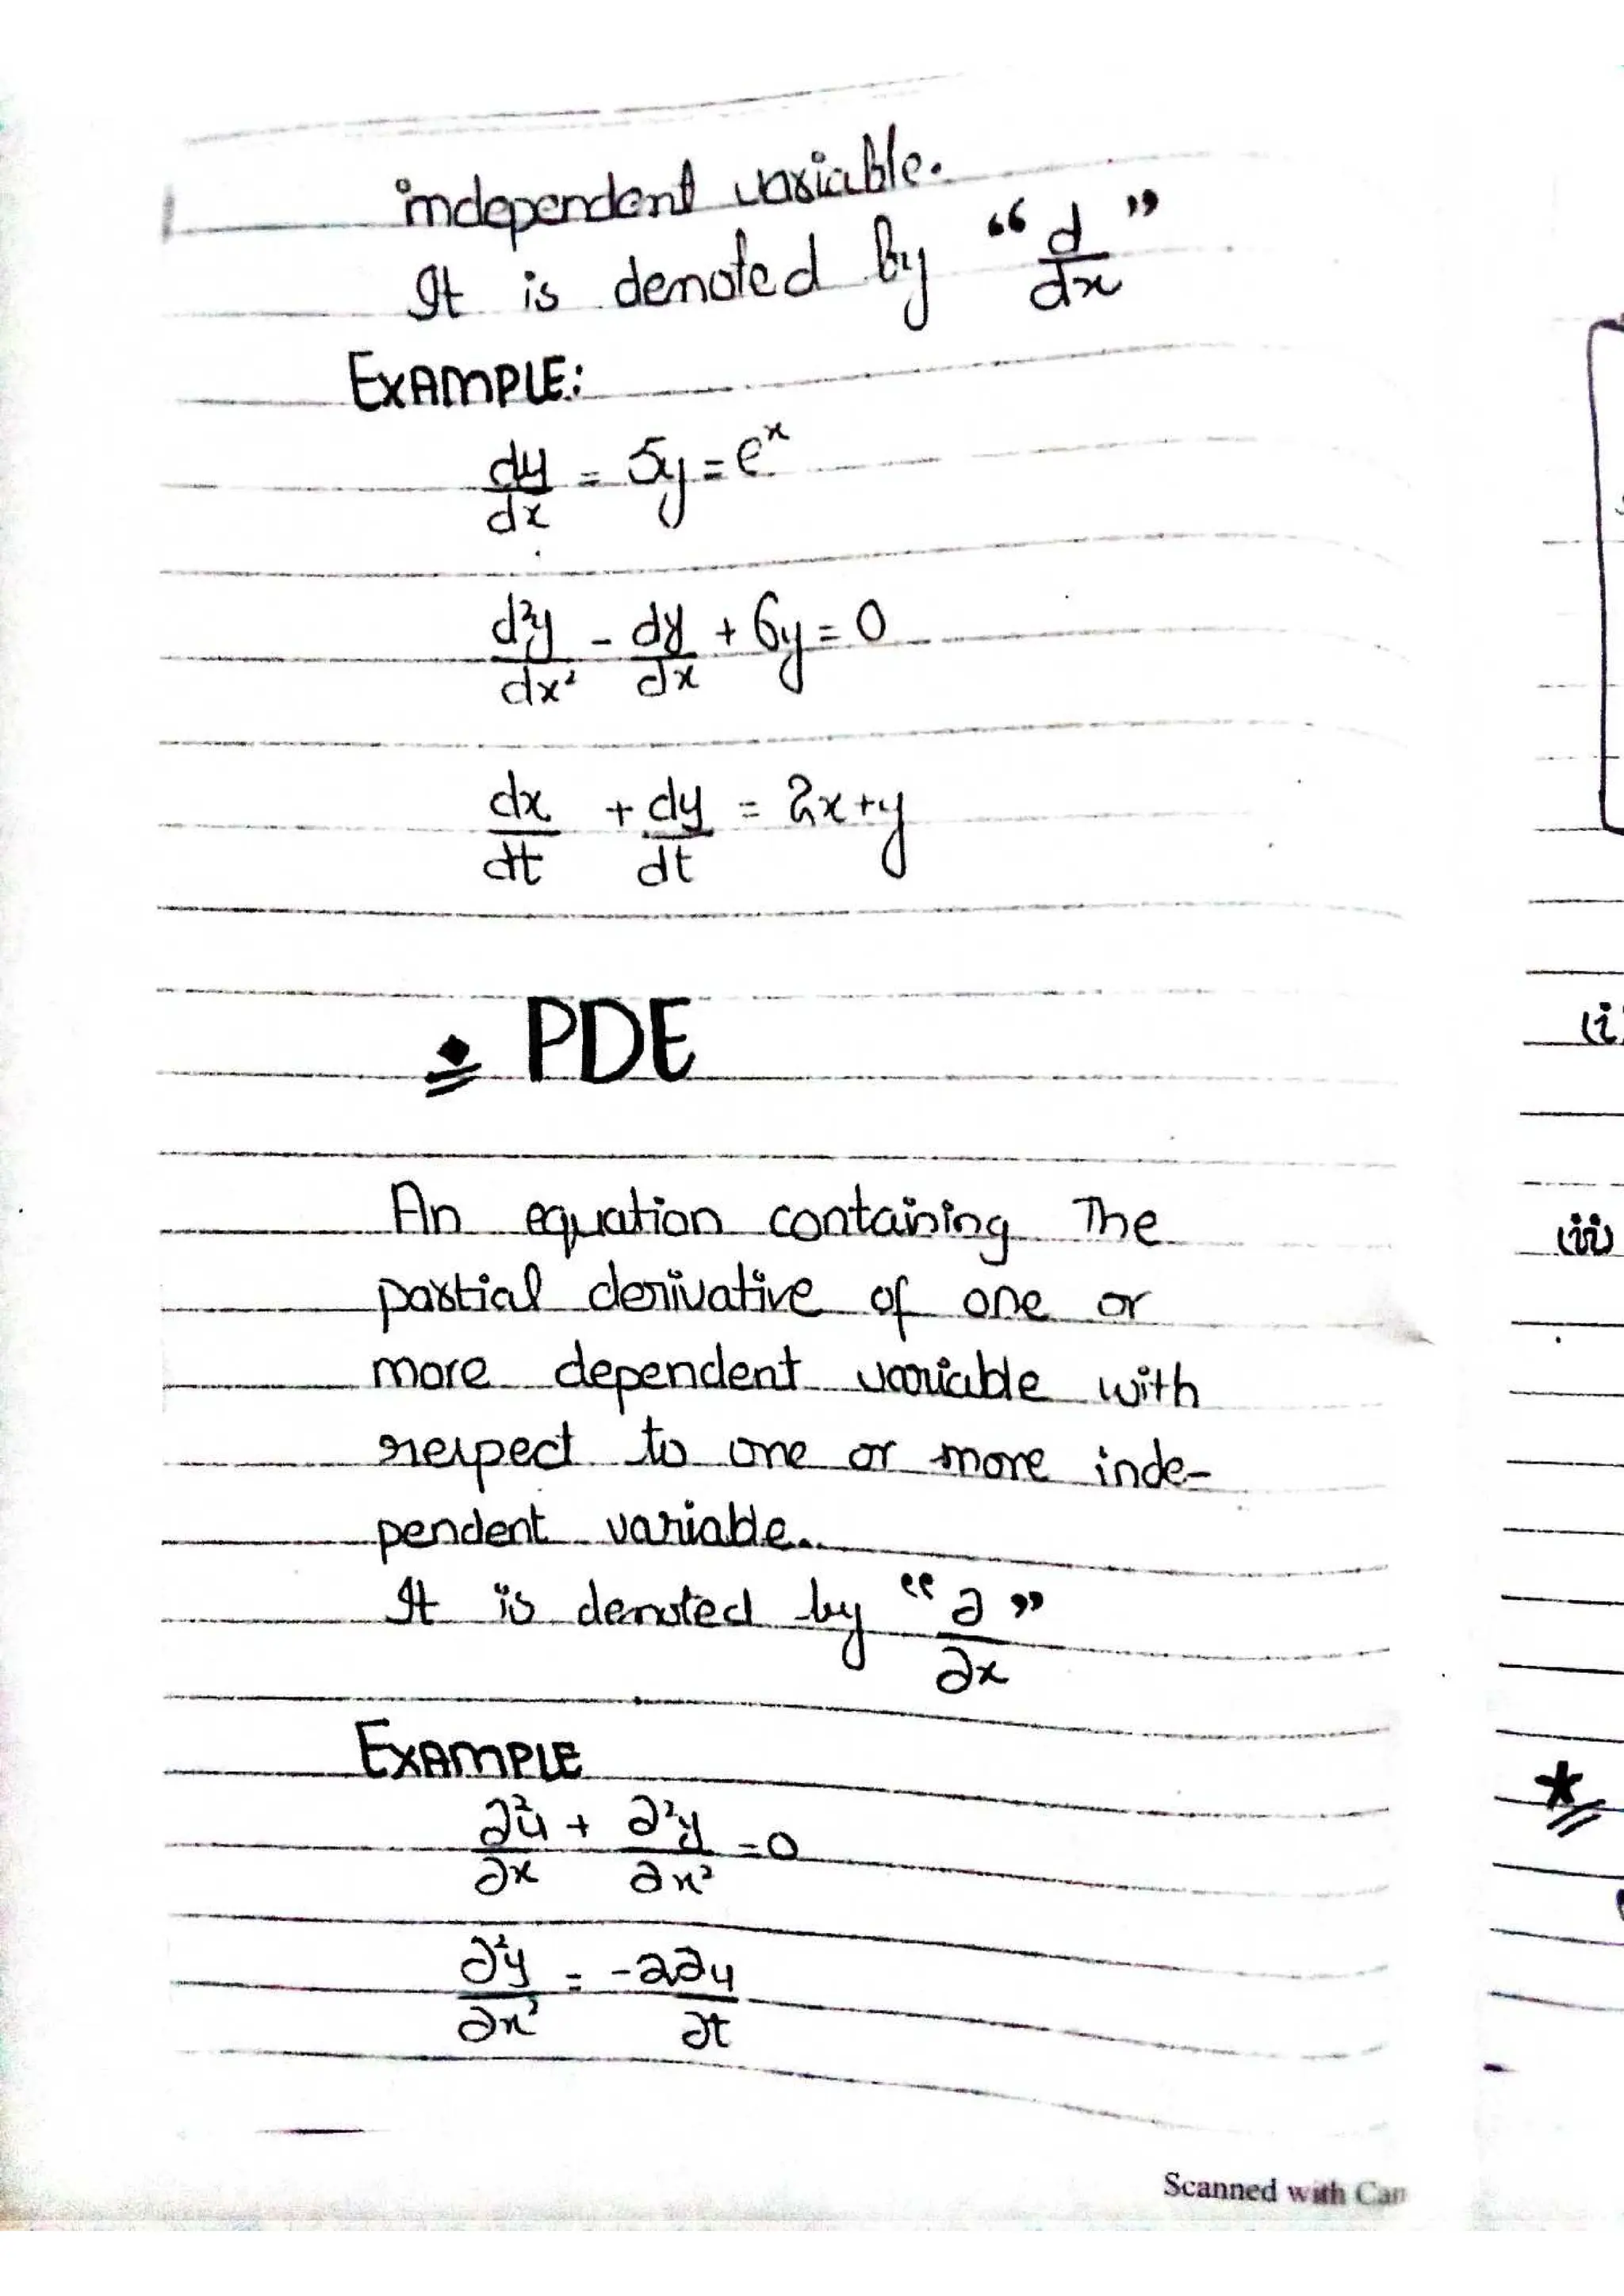 independent variable.
It is denoted by “d/dx”
EXAMPLE:
dy/dx = 5y = eˣ
d²y/dx² - dy/dx + 6y = 0
dx/dt + dy/dt = 2x+y
PDE
An equation containing The
partial derivative of one or
more dependent variable with
respect to one or more inde-
pendent variable.
It is denoted by “∂/∂x”
EXAMPLE
∂²u/∂x + ∂²y/∂x² = 0
∂²y/∂x² = -2∂u/∂t
Scanned with Cam
(i)
(ii)